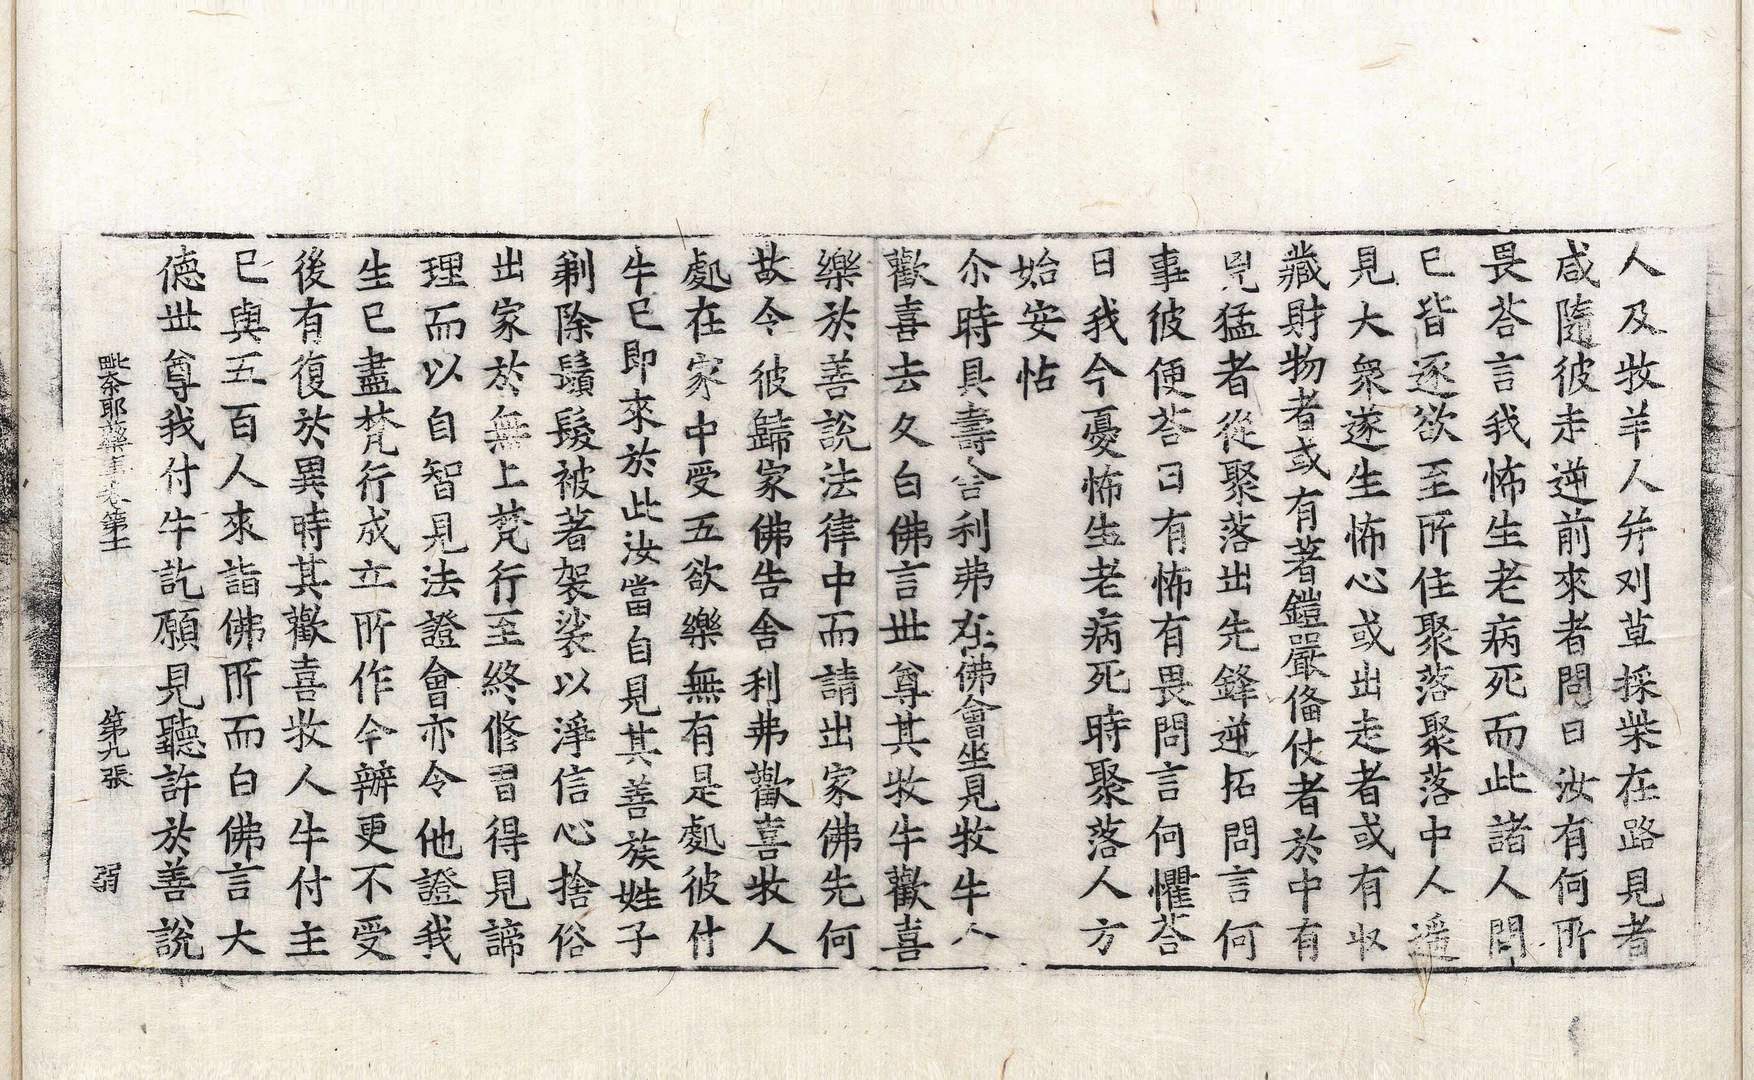 人及牧羊人并刈草採柴在路見者
咸隨彼走逆前來者問曰汝有何所
畏荅言我怖生老病死而此諸人問
已皆逐欲至所住聚落聚落中人遥
見大衆遂生怖心或出走者或有収
藏財物者或有著鎧嚴俻仗者於中有
見猛者從聚落出先鋒逆拓問言何
事彼便荅曰有怖有畏問言何懼荅
曰我今憂怖生老病死時聚落人方
始安怗
尒時具壽舍利弗在佛會坐見牧牛人
歡喜去久白佛言世尊其牧牛歡喜
樂於善說法律中而請出家佛先何
故令彼歸家佛告舍利弗歡喜牧人
處在家中受五欲樂無有是處彼付
牛已即來於此汝當自見其善族姓子
剃除鬚髮被著袈裟以淨信心捨俗
出家於無上梵行至終修習得見諦
理而以自智見法證會亦令他證我
生已盡梵行成立所作今辦更不受
後有復於異時其歡喜牧人牛付主
已與五百人來詣佛所而白佛言大
德世尊我付牛訖願見聽許於善說
毗奈耶藥事卷第十一 第九張 弱